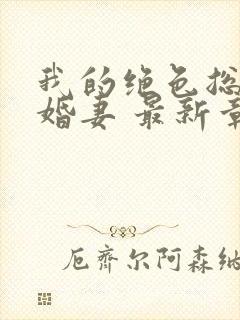 我的绝色总
婚妻 最新章
厄齐尔阿森纳